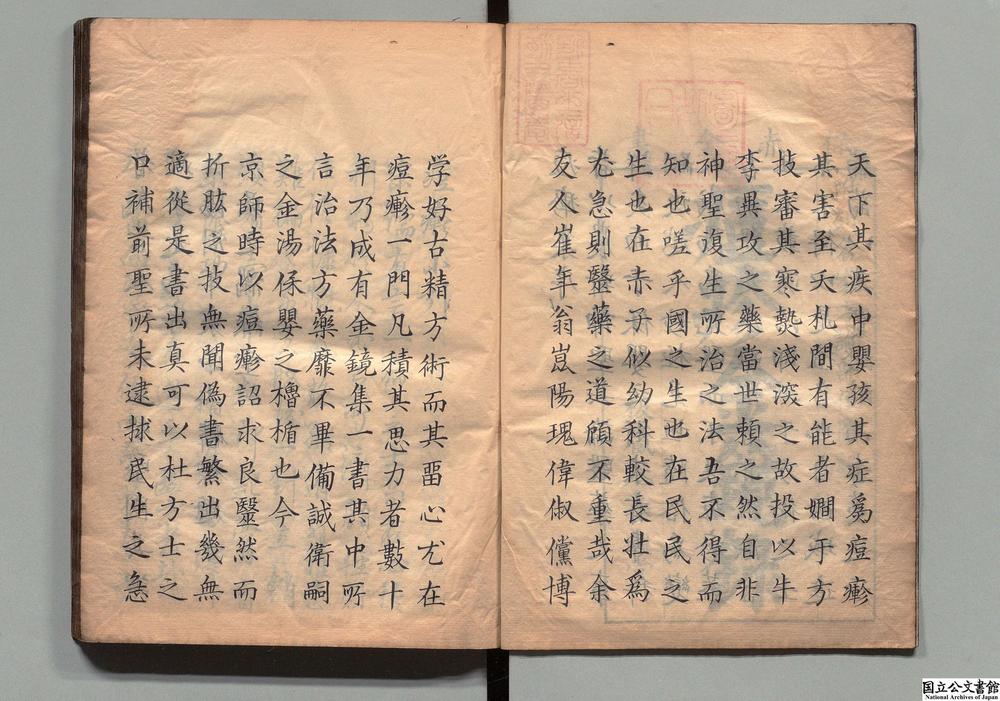 天下其疾中嬰孩其症爲痘瘮
其害至夭札間有能者嫺于方
技審其寒𤍠淺深之故投以牛
李異攻之藥當世賴之然自非
神聖復生所治之法吾不得而
知也嗟乎國之生也在民民之
生也在赤子似幼科較長壯爲
尤急則毉藥之道顧不重哉余
友人崔年翁崑陽瑰偉俶儻博
学好古精方術而其畱心尤在
痘瘮一門凡積其思力者數十
年乃成有金鏡集一書其中所
言治法方藥靡不畢備誠衛嗣
之金湯保嬰之櫓楯也今
京師時以痘瘮詔求良毉然而
折肱之技無聞偽書繁出幾無
適從是書出真可以杜方士之
口補前聖所未逮捄民生之急
国立公文書館
National Archives of Japan